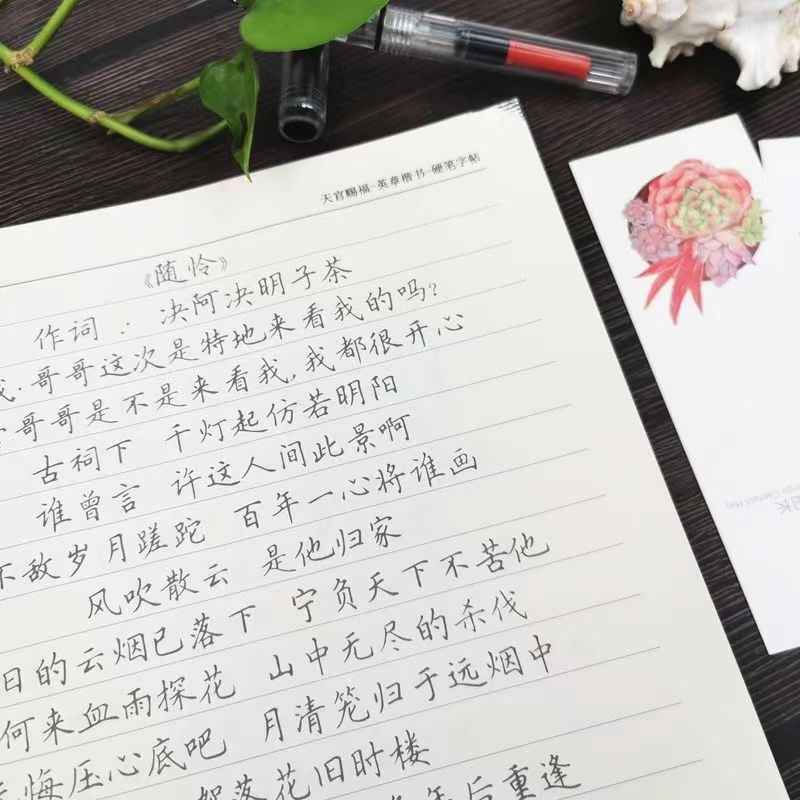 天官赐福-英章楷书-硬笔字帖
《随怜》
作词：决阿决明子茶
哥哥这次是特地来看我的吗？
哥哥是不是来看我，我都很开心
古祠下 千灯起仿若明阳
谁曾言 许这人间此景啊
不敌岁月蹉跎 百年一心将谁画
风吹散云 是他归家
日的云烟已落下 宁负天下不苦他
何来血雨探花 山中无尽的杀伐
悔压心底吧 月清笼归于远烟中
落花旧时楼
年后重逢